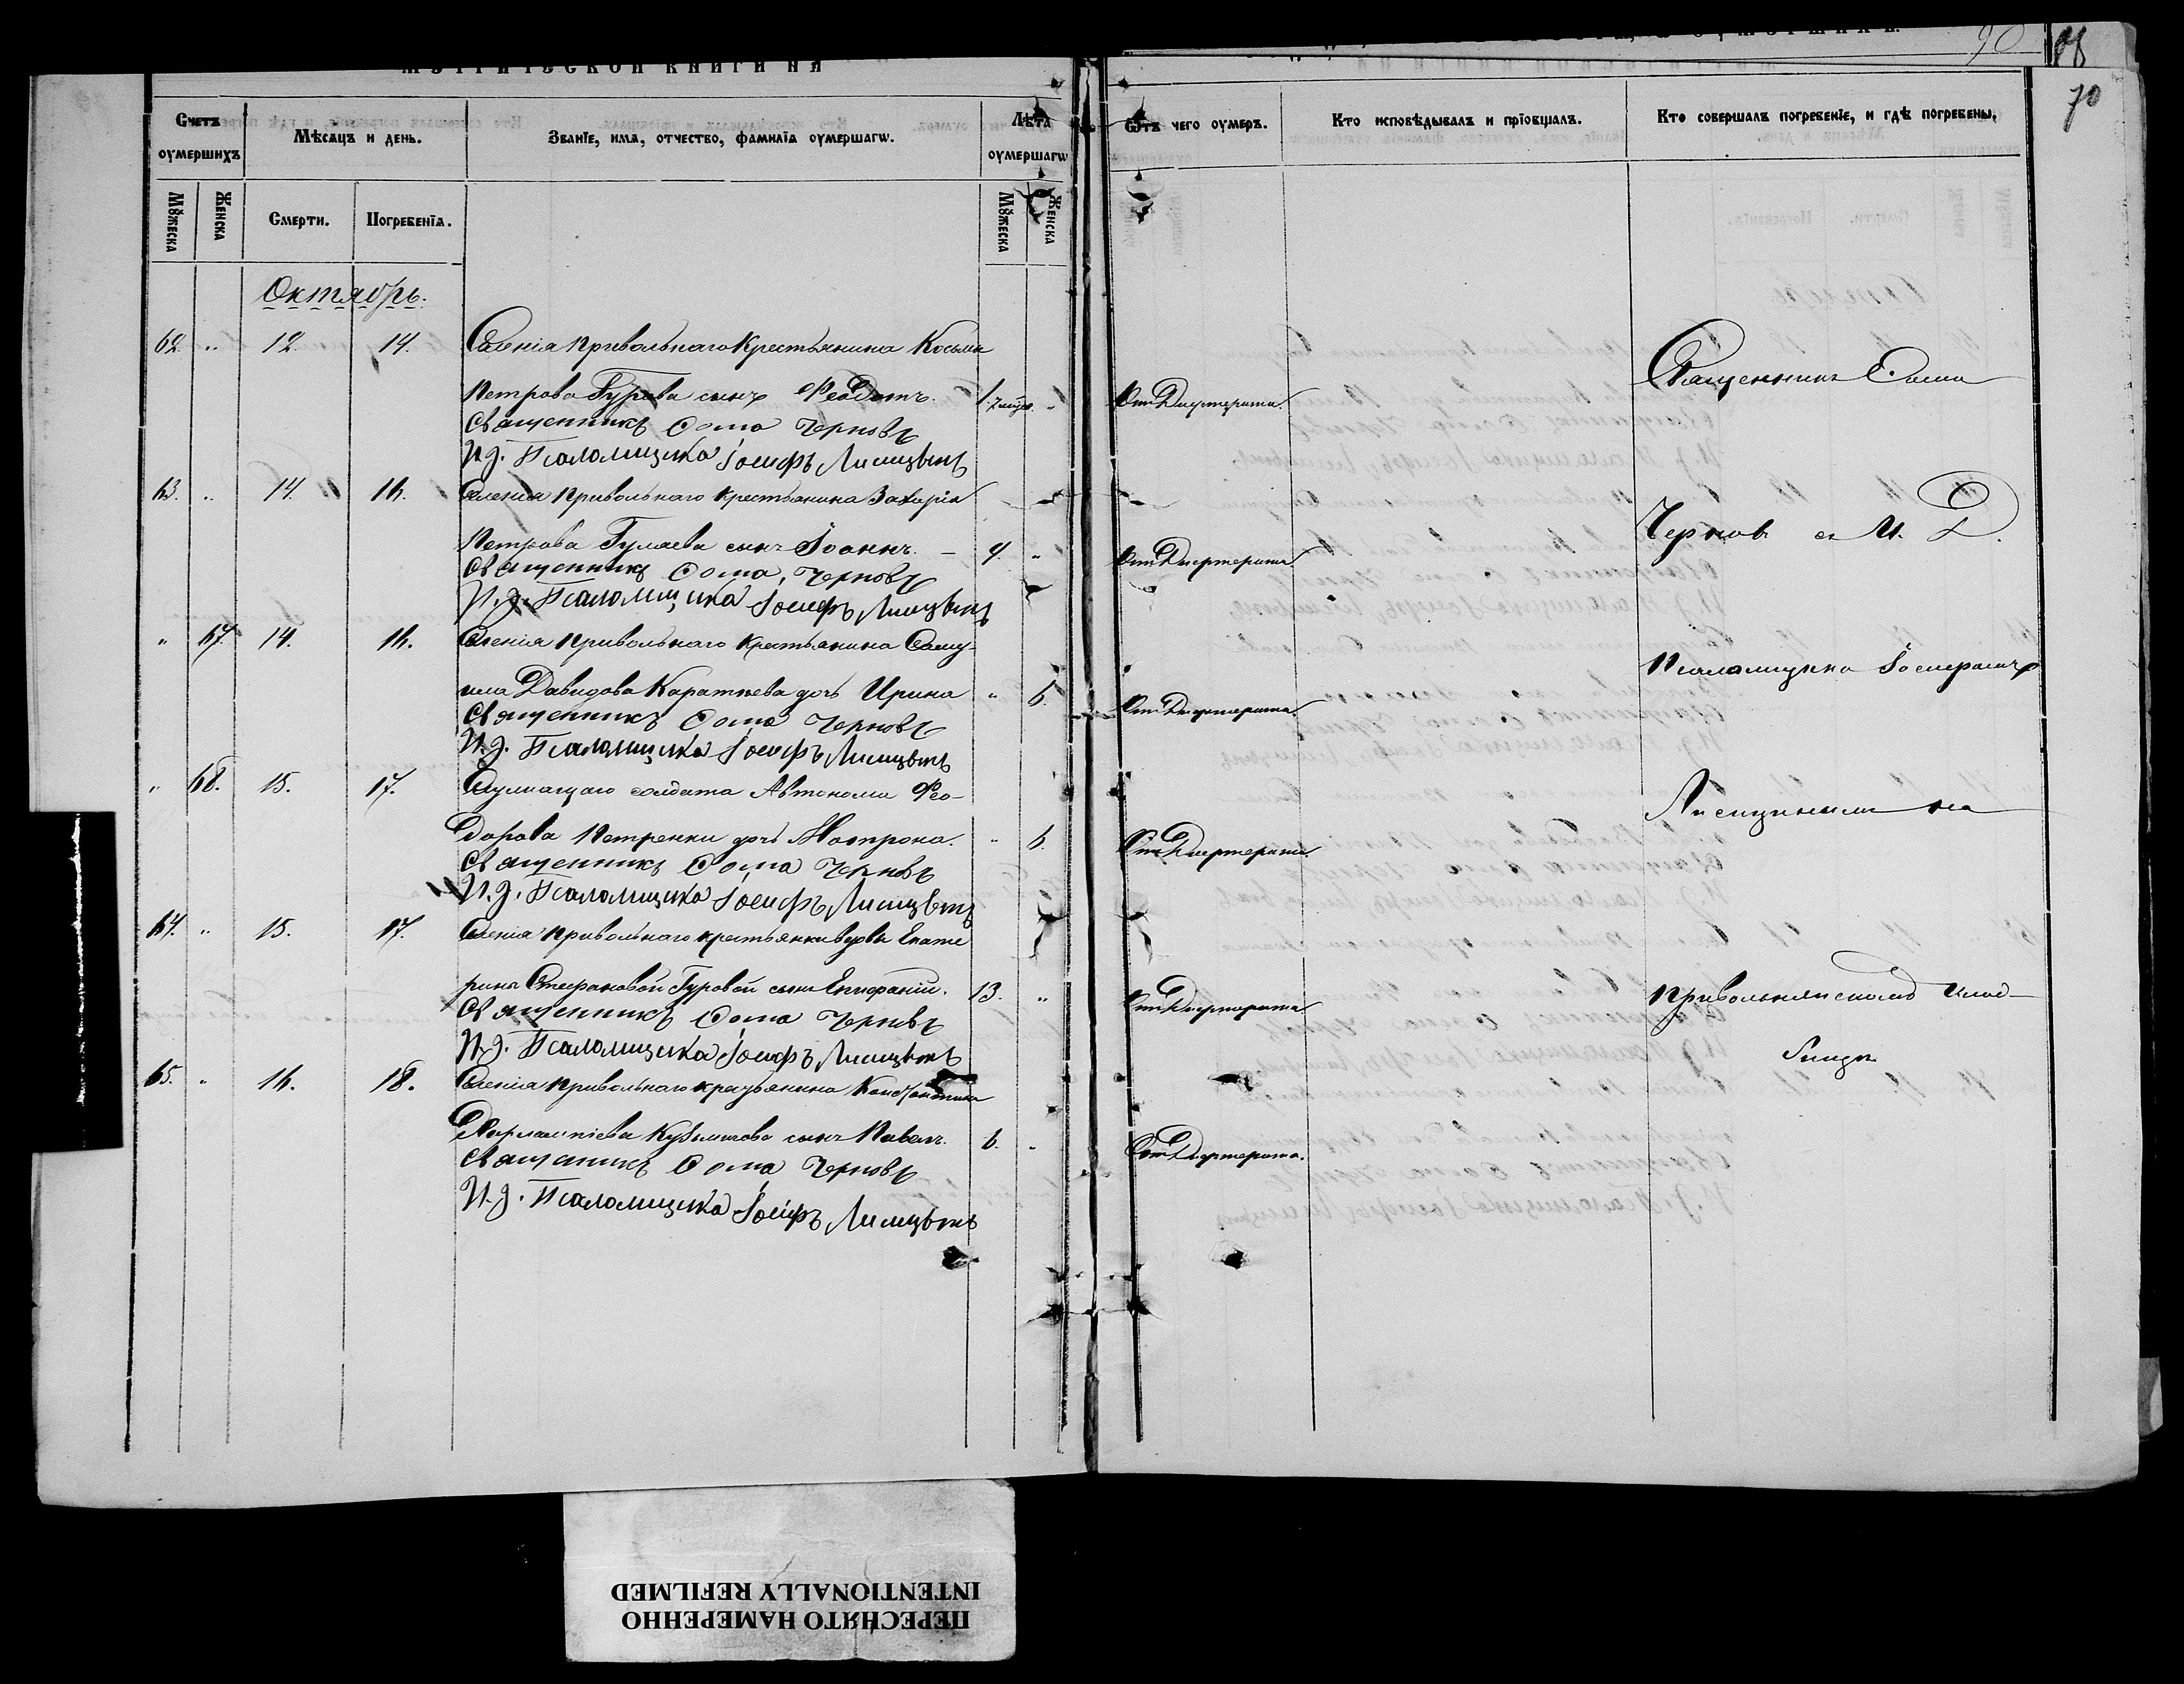 МЕТРИЧЕСКОЙ КНИГИ НА
90
70
Счетъ оумершихъ
Мѣсяцъ и день.
Званїе, имя, отчество, фамилїа оумершагѡ.
Лѣта оумершагѡ
Ѿтъ чего оумеръ.
Кто исповѣдывалъ и прїовщалъ.
Кто совершалъ погребенїе, и гдѣ погребены.
Мꙋжеска
Женска
Смерти.
Погребенїя.
Мꙋжеска
Женска
Октябрь.
62. " 12. 14. Селенія Привольнаго Крестьянина Косьмы
Петрова Гурова сынъ Феодотъ. 1. 7 мѣс. " Отъ Дифтерита.
Священникъ Фома Черновъ
И. д. Псаломщика Іосифъ Лисицынъ
63. " 14. 16. Селенія Привольнаго Крестьянина Захарія
Петрова Гулаева сынъ Іоаннъ. — 4. " Отъ Дифтерита.
Священникъ Фома Черновъ
И. д. Псаломщика Іосифъ Лисицынъ
" 67. 14. 16. Селенія Привольнаго Крестьянина Саму-
ила Давидова дочь Ирина " 6. Отъ Дифтерита.
Священникъ Фома Черновъ
И. д. Псаломщика Іосифъ Лисицынъ
" 68. 15. 17. Служащаго солдата Автонома Фео-
дорова Петренки дочь Матрона. " 6. Отъ Дифтерита.
Священникъ Фома Черновъ
И. д. Псаломщика Іосифъ Лисицынъ
64. " 15. 17. Селенія Привольнаго крестьянки вдовы Екате
рины Стефановой Гуровой сынъ Епифаній. 13. " Отъ Дифтерита
Священникъ Фома Черновъ
И. д. Псаломщика Іосифъ Лисицынъ
65. " 16. 18. Селенія Привольнаго крестьянина Константина
Харлампіева сынъ Павелъ. 6. " Отъ Дифтерита.
Священникъ Фома Черновъ
И. д. Псаломщика Іосифъ Лисицынъ
Священникъ Фома
Черновъ съ И. Д.
Псаломщика Іосифомъ
Лисицынымъ на
Привольнянскомъ клад-
бищѣ
ПЕРЕСНЯТО НАМЕРЕННО
INTENTIONALLY REFILMED